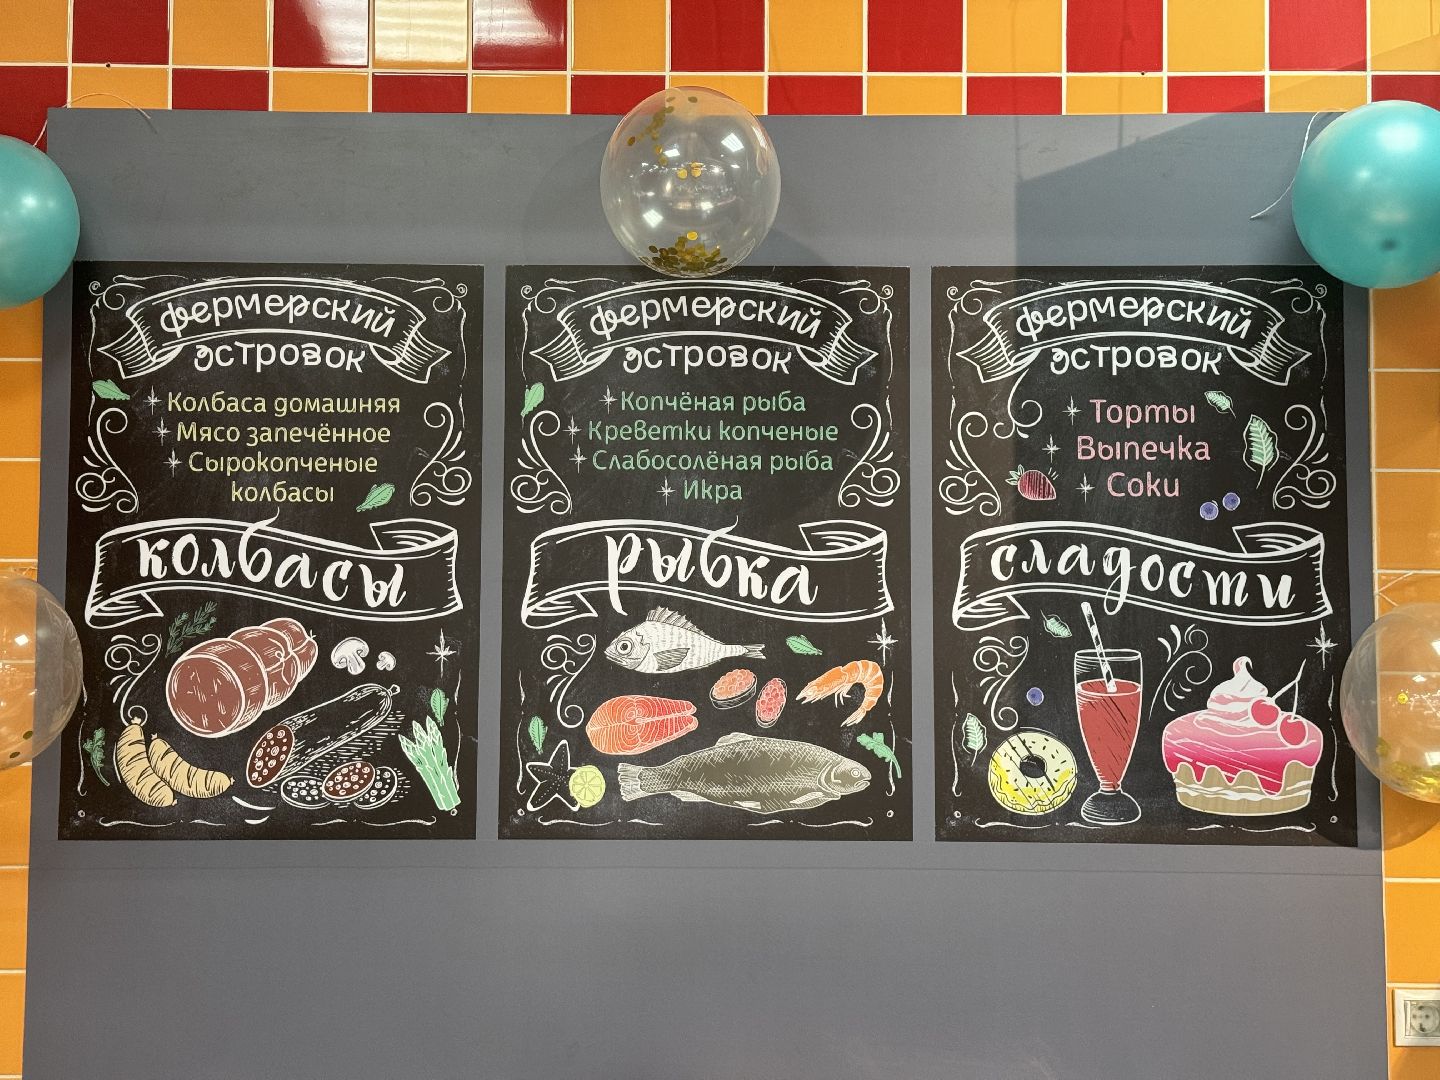 фермерский
островок
Колбаса домашняя
Мясо запечённое
Сырокопченые
колбасы
колбасы
фермерский
островок
Копчёная рыба
Креветки копченые
Слабосолёная рыба
Икра
рыбка
фермерский
островок
Торты
Выпечка
Соки
сладости